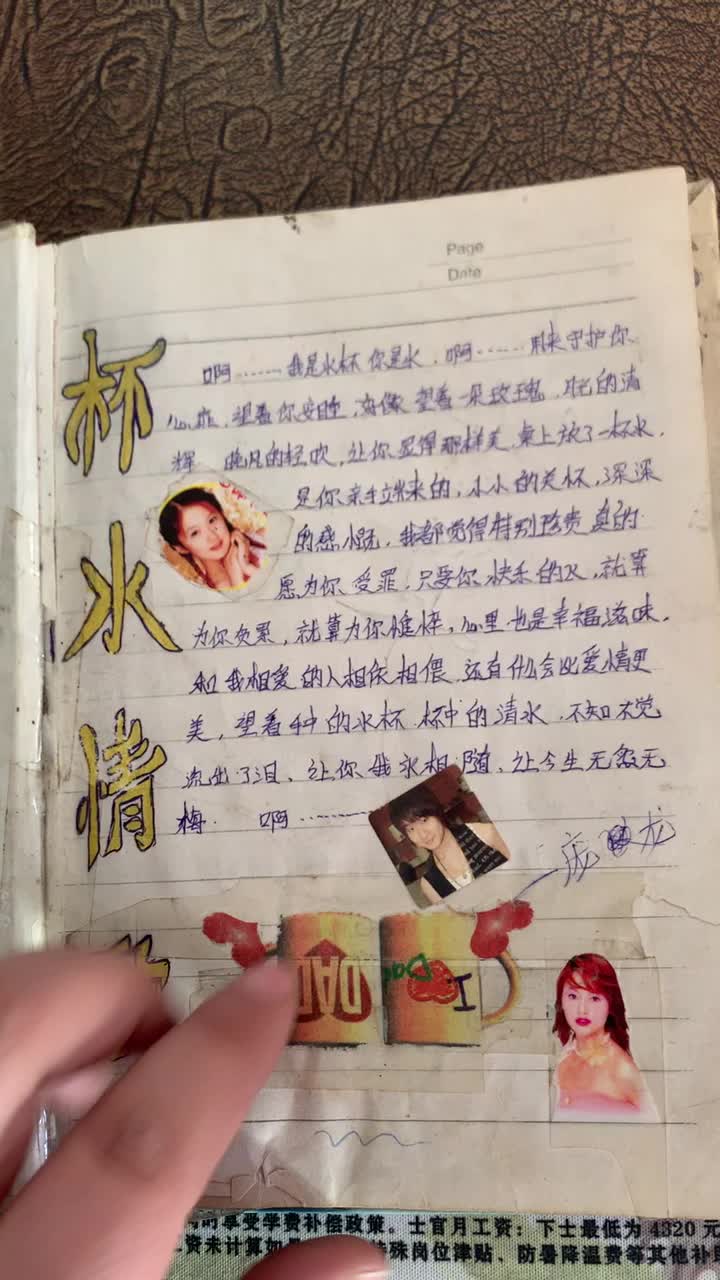 Page
Date
杯
水
情
啊……我是水杯 你是水．啊……用来守护你
心扉，望着你安睡，好像 望着一朵玫瑰，月的清
辉 晚风的轻吹，让你 显得那样美．桌上放了一杯水，
是你亲手端来的，小小的关怀，深深
的感慨，我都觉得特别珍贵 真的
愿为你 受罪，只要你 快乐的 就算
为你负累，就算为你憔悴，心里也是幸福滋味．
和我相爱的人相依相偎 还有什么会比爱情更
美，望着手中的水杯 杯中的清水，不知不觉
流出了泪，让你我永相随，让今生无怨无
悔． 啊………
庞 龙
DAD
I Dad
享受学费补偿政策。士官月工资：下士最低为 4320 元
资未计算如 特殊岗位津贴、防暑降温费等其他补